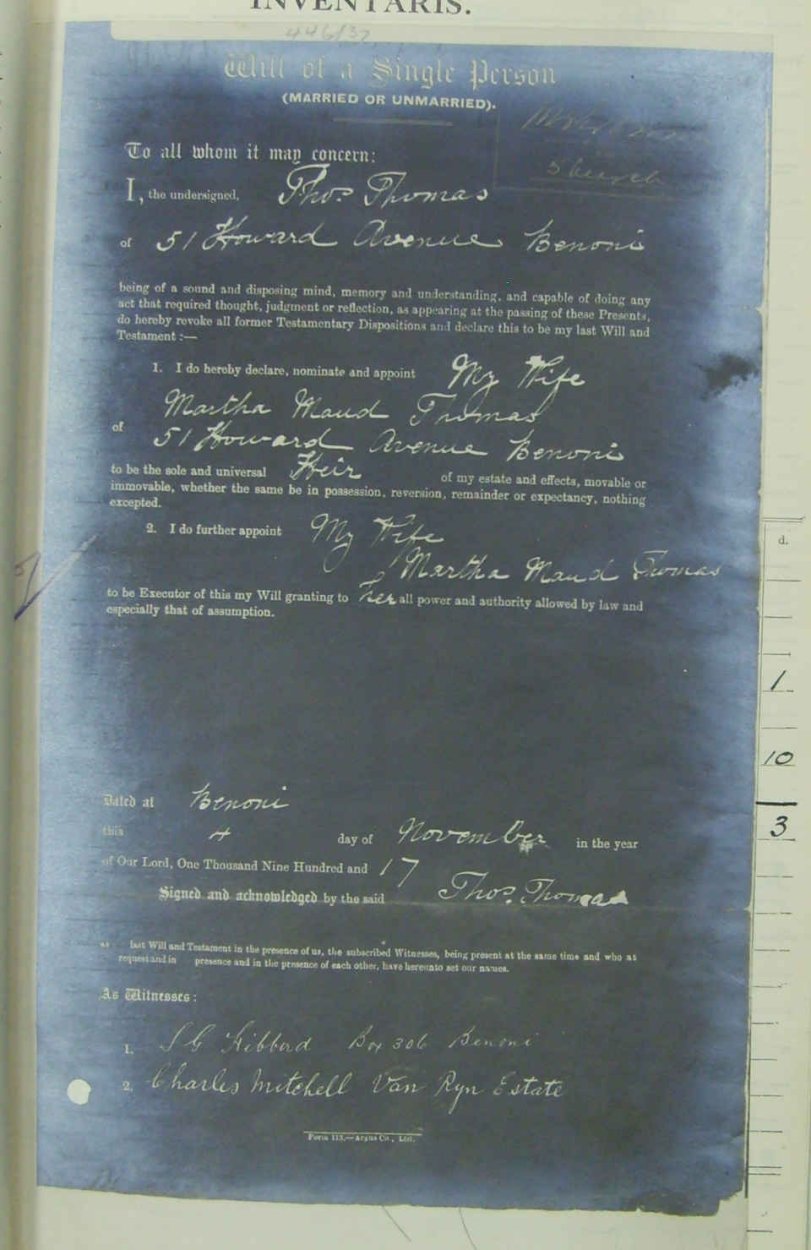 INVENTARIS.
446/37
Will of a Single Person
(MARRIED OR UNMARRIED).
To all whom it may concern:
I, the undersigned, Thos. Thomas
of 51 Howard Avenue Benoni
being of a sound and disposing mind, memory and understanding, and capable of doing any
act that required thought, judgment or reflection, as appearing at the passing of these Presents,
do hereby revoke all former Testamentary Dispositions and declare this to be my last Will and
Testament :—
1. I do hereby declare, nominate and appoint My Wife
Martha Maud Thomas
of 51 Howard Avenue Benoni
to be the sole and universal Heir of my estate and effects, movable or
immovable, whether the same be in possession, reversion, remainder or expectancy, nothing
excepted.
2. I do further appoint My Wife
Martha Maud Thomas
to be Executor of this my Will granting to her all power and authority allowed by law and
especially that of assumption.
d.
1
10
3
Dated at Benoni
this 4 day of November in the year
of Our Lord, One Thousand Nine Hundred and 17
Signed and acknowledged by the said Thos. Thomas
as last Will and Testament in the presence of us, the subscribed Witnesses, being present at the same time and who at
request and in presence and in the presence of each other, have hereunto set our names.
As Witnesses:
1. S G Hibberd Box 306 Benoni
2. Charles Mitchell Van Ryn Estate
Form 113.—Argus Co., Ltd.